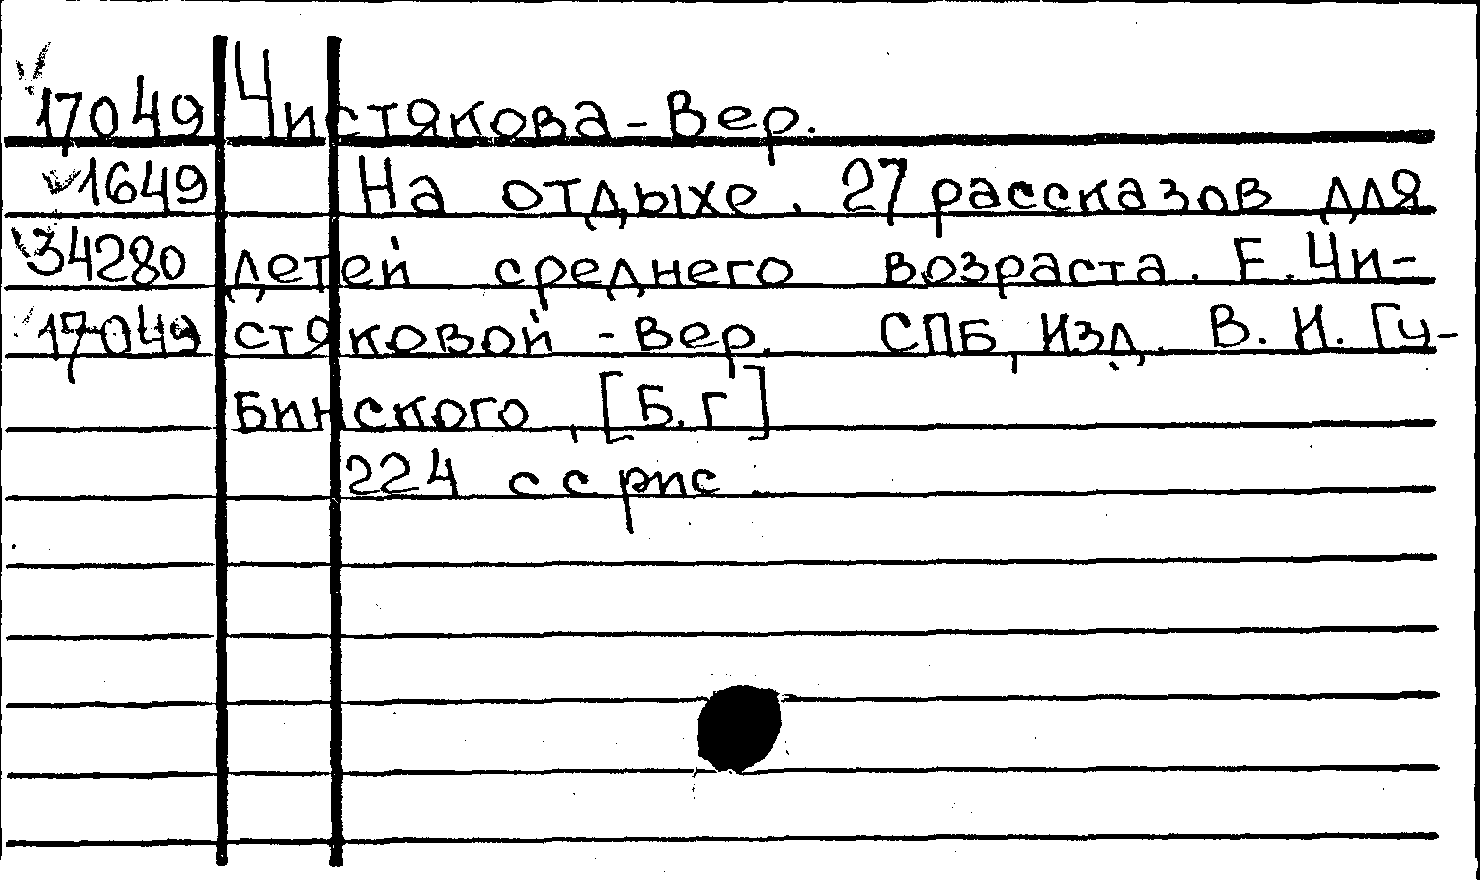 17049 Чистякова-Вер.
1649 На отдыхе. 27 рассказов для
34280 детей среднего возраста. Е. Чи-
17049 стяковой-Вер. СПБ, Изд. В. И. Гу-
бинского, [Б.г]
224 с с рис.